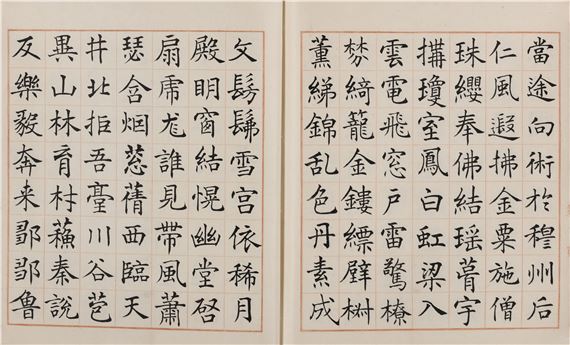 當途向術於穆州后
仁風遐拂金粟施僧
珠纓奉佛結瑶宇
搆瓊室鳳白虹梁入
雲電飛窓戶雷驚橑
棼綺籠金鏤縹壁
薰綈錦乱色丹素成
文髣髴雪宫依稀月
殿明窗結愰幽堂啓
扇虎尨誰見帶風蕭
瑟含烟葱蒨西臨天
井北拒吾臺川谷苞
異山林育村蘓秦説
反樂毅奔来魯